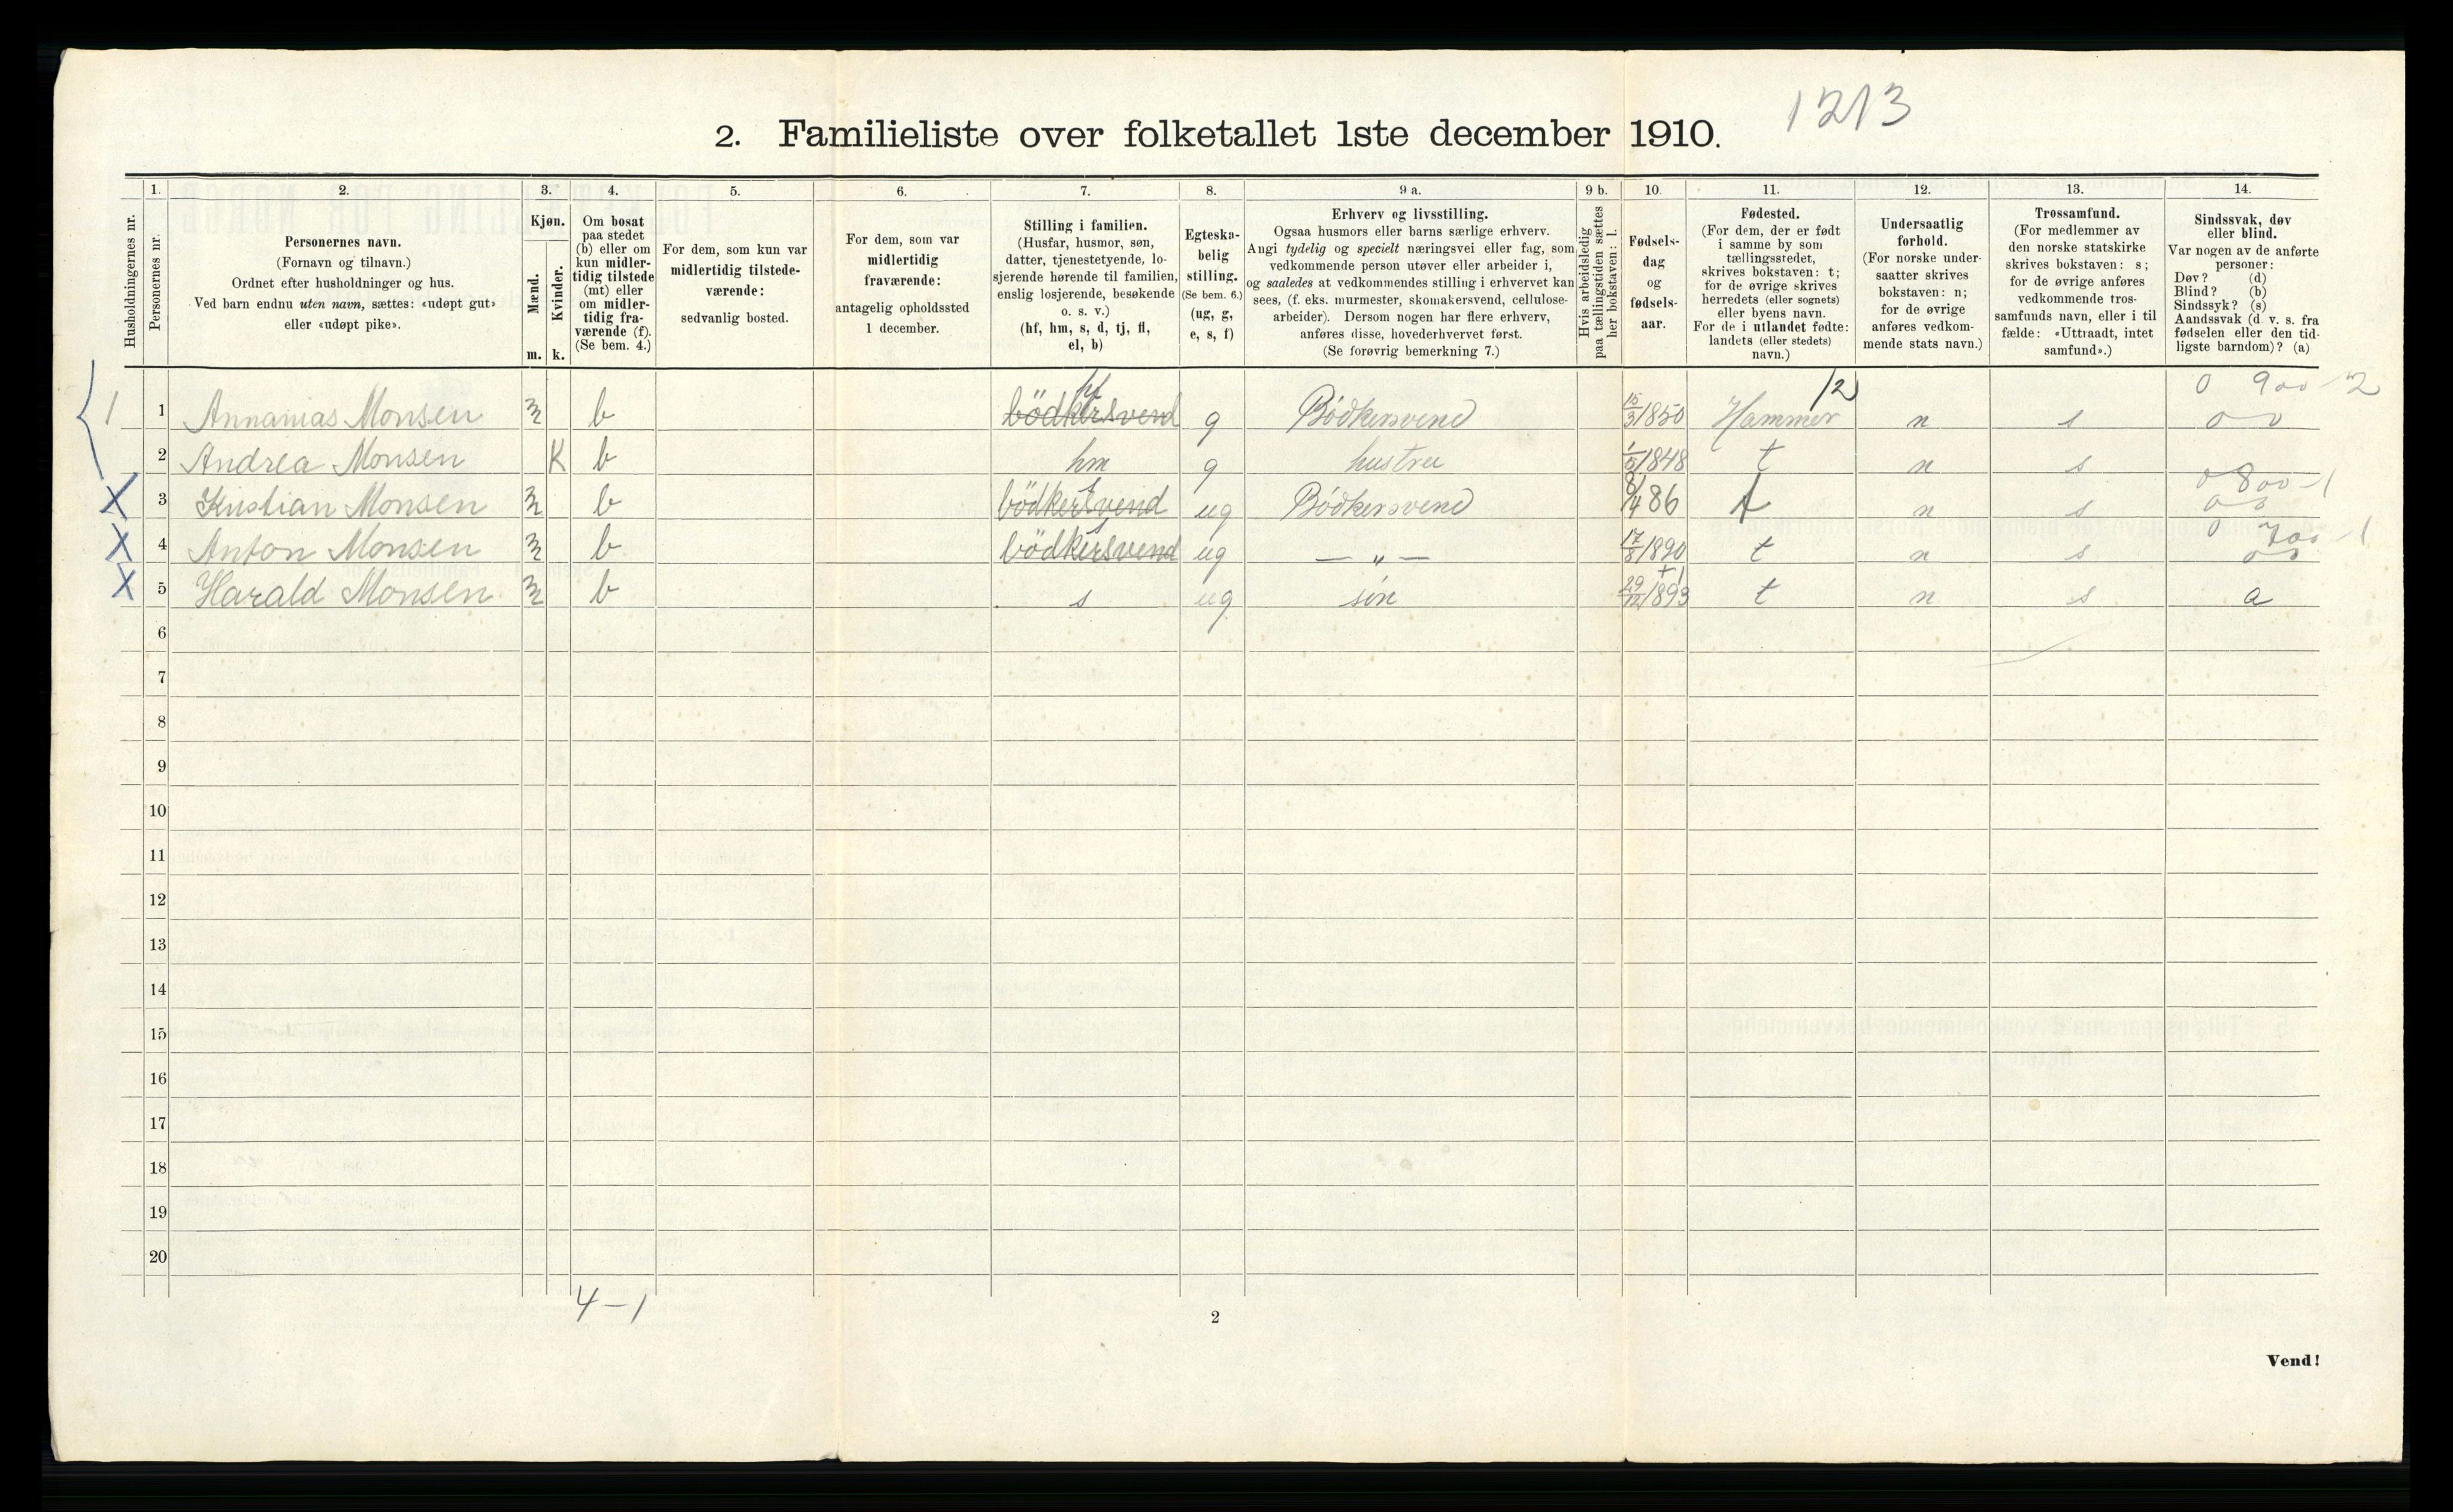 1213
2. Familieliste over folketallet 1ste december 1910.
Husholdningernes nr.
1.
Personernes nr.
2.
Personernes navn.
(Fornavn og tilnavn.)
Ordnet efter husholdninger og hus.
Ved barn endnu uten navn, sættes: «udøpt gut»
eller «udøpt pike».
3.
Kjøn.
Mænd.
Kvinder.
m. k.
4.
Om bosat
paa stedet
(b) eller om
kun midler-
tidig tilstede
(mt) eller
om midler-
tidig fra-
værende (f).
(Se bem. 4.)
5.
For dem, som kun var
midlertidig tilstede-
værende:
sedvanlig bosted.
6.
For dem, som var
midlertidig
fraværende:
antagelig opholdssted
1 december.
7.
Stilling i familien.
(Husfar, husmor, søn,
datter, tjenestetyende, lo-
sjerende hørende til familien,
enslig losjerende, besøkende
o. s. v.)
(hf, hm, s, d, tj, fl,
el, b)
8.
Egteska-
belig
stilling.
(Se bem. 6.)
(ug, g,
e, s, f)
9 a.
Erhverv og livsstilling.
Ogsaa husmors eller barns særlige erhverv.
Angi tydelig og specielt næringsvei eller fag, som
vedkommende person utøver eller arbeider i,
og saaledes at vedkommendes stilling i erhvervet kan
sees, (f. eks. murmester, skomakersvend, cellulose-
arbeider). Dersom nogen har flere erhverv,
anføres disse, hovederhvervet først.
(Se forøvrig bemerkning 7.)
9 b.
Hvis arbeidsledig
paa tællingstiden sættes
her bokstaven: l.
10.
Fødsels-
dag
og
fødsels-
aar.
11.
Fødested.
(For dem, der er født
i samme by som
tællingsstedet,
skrives bokstaven: t;
for de øvrige skrives
herredets (eller sognets)
eller byens navn.
For de i utlandet fødte:
landets (eller stedets)
navn.)
12.
Undersaatlig
forhold.
(For norske under-
saatter skrives
bokstaven: n;
for de øvrige
anføres vedkom-
mende stats navn.)
13.
Trossamfund.
(For medlemmer av
den norske statskirke
skrives bokstaven: s;
for de øvrige anføres
vedkommende tros-
samfunds navn, eller i til
fælde: «Uttraadt, intet
samfund».)
14.
Sindssvak, døv
eller blind.
Var nogen av de anførte
personer:
Døv? (d)
Blind? (b)
Sindssyk? (s)
Aandssvak (d. v. s. fra
fødselen eller den tid-
ligste barndom)? (a)
hf 12 0 900-2
1 1 Annanias Monsen m b bödkersvend g Bödkersvend 15/3 1850 Hammer n s 0 0
2 Andrea Monsen K b hm g hustru 1/5 1848 t n s
s 0 800-1
X 3 Kristian Monsen m b bödkersvend ug Bödkersvend 8/4 86 t n s 0 0
s 0 700-1
X 4 Anton Monsen m b bödkersvend ug — „ — 17/8 1890 t n s 0 0
X 5 Harald Monsen m b s ug sön 29/12 1893 t n s a
6
7
8
9
10
11
12
13
14
15
16
17
18
19
20
4-1
2
Vend!